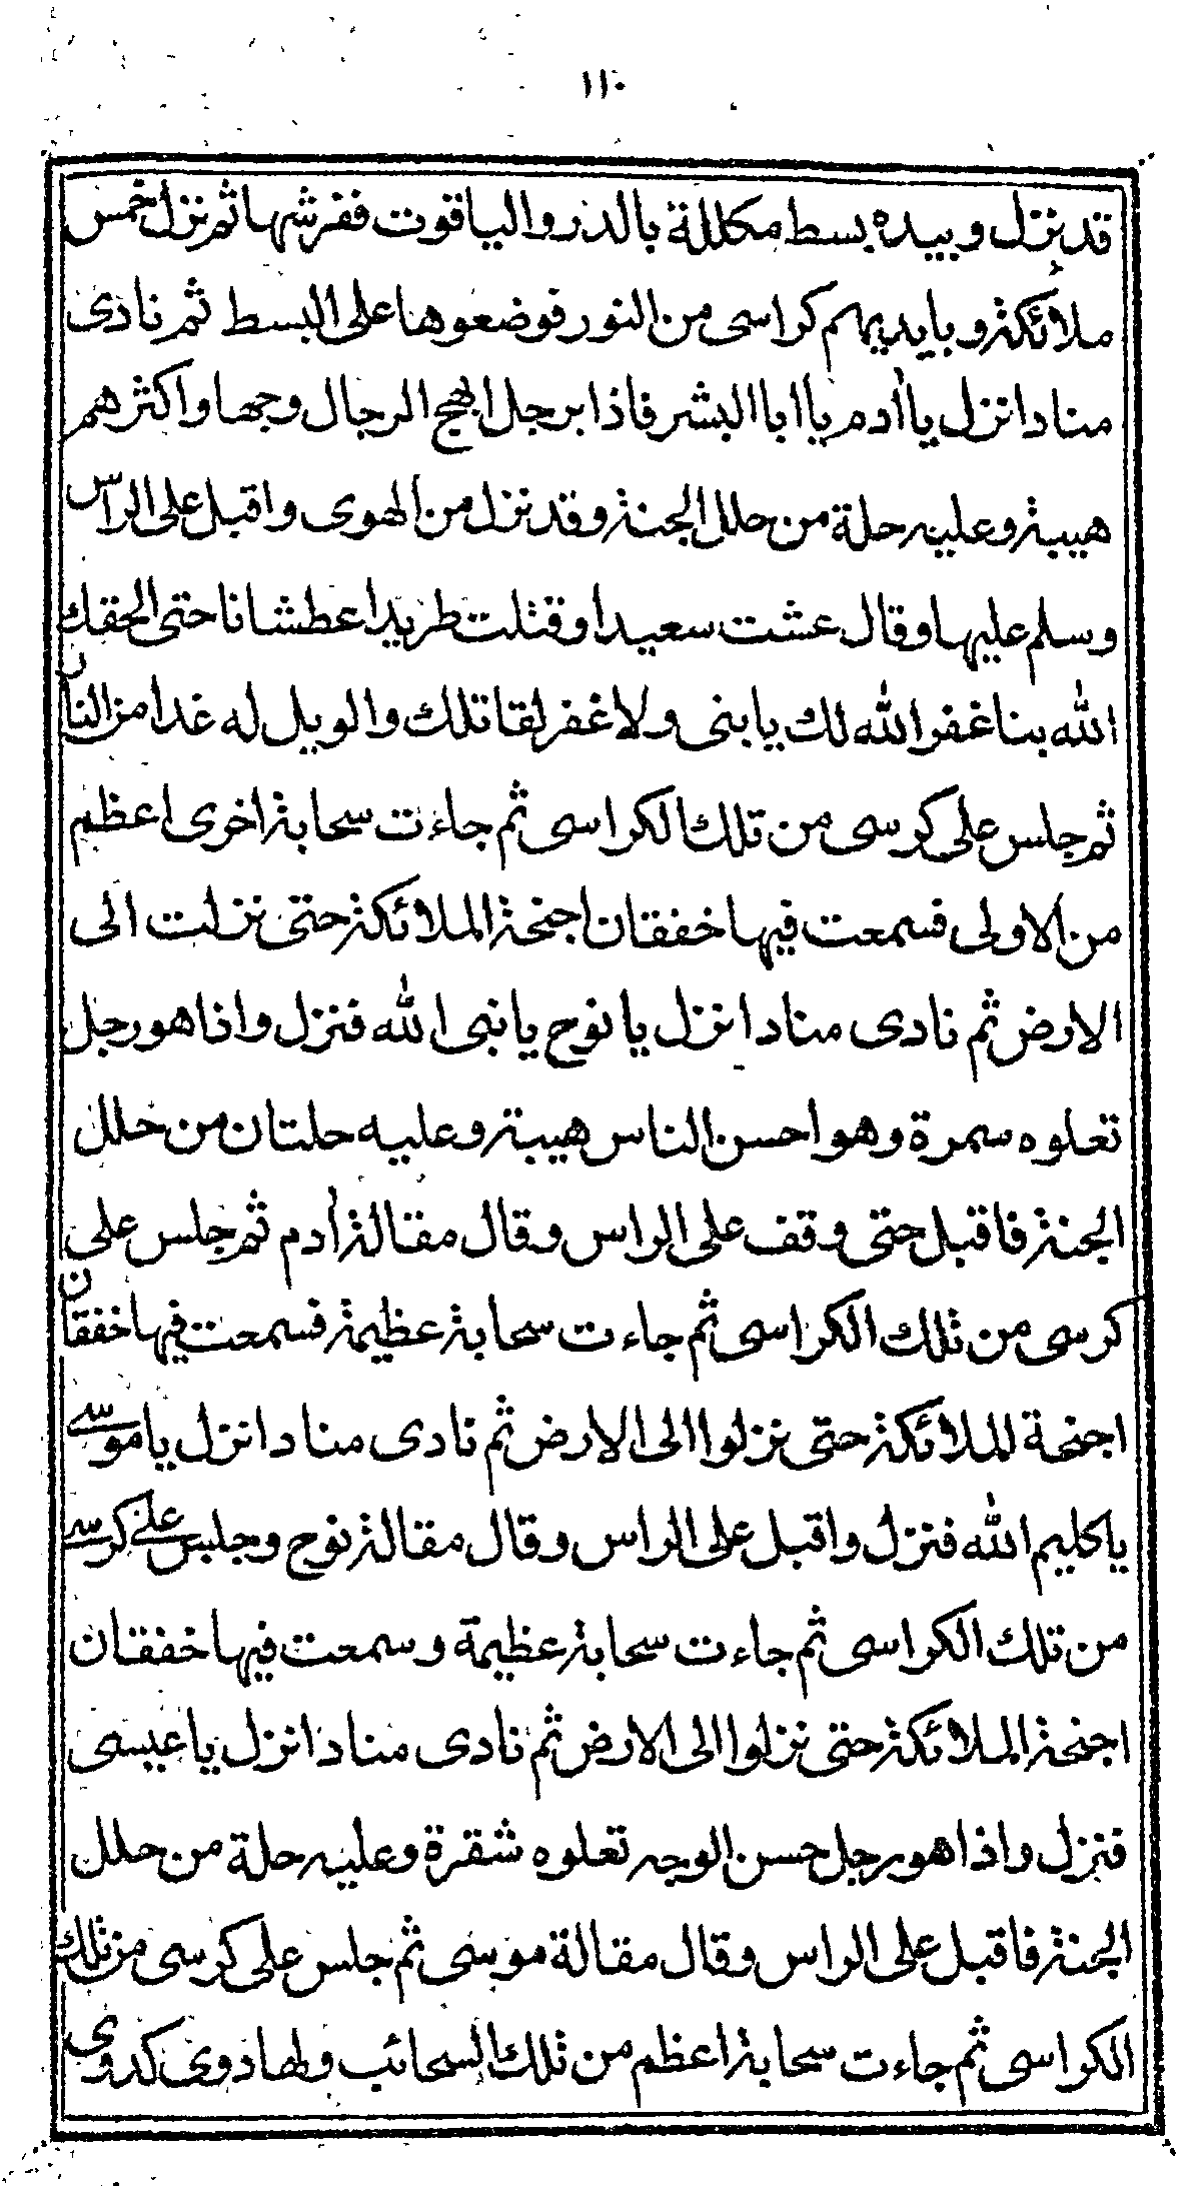 ١١٠
قد نزل وبيده بسط مكللة بالدر والياقوت ففرشها ثم نزل خمس
ملائكة وبايديهم كراسى من النور فوضعوها على البسط ثم نادى
مناد انزل يا أدم يا ابا البشر فاذا برجل ابهج الرجال وجها واكثرهم
هيبة وعليه حلة من حلل الجنة وقد نزل من الهوى واقبل على الراس
وسلم عليها وقال عشت سعيدا وقتلت طريدا عطشانا حتى الحقك
الله بنا غفر الله لك يا بنى ولا غفر لقاتلك والويل له غدا من النار
ثم جلس على كرسى من تلك الكراسى ثم جاءت سحابة اخرى اعظم
من الاولى فسمعت فيها خفقان اجنحة الملائكة حتى نزلت الى
الارض ثم نادى مناد انزل يا نوح يا نبى الله فنزل واذا هو رجل
تعلوه سمرة وهو احسن الناس هيبة وعليه حلتان من حلل
الجنة فاقبل حتى وقف على الراس وقال مقالة أدم ثم جلس على
كرسى من تلك الكراسى ثم جاءت سحابة عظيمة فسمعت فيها خفقان
اجنحة الملائكة حتى نزلوا الى الارض ثم نادى مناد انزل يا موسى
يا كليم الله فنزل واقبل على الراس وقال مقالة نوح وجلس على كرسى
من تلك الكراسى ثم جاءت سحابة عظيمة وسمعت فيها خفقان
اجنحة الملائكة حتى نزلوا الى الارض ثم نادى مناد انزل يا عيسى
فنزل واذا هو رجل حسن الوجه تعلوه شقرة وعليه حلة من حلل
الجنة فاقبل على الراس وقال مقالة موسى ثم جلس على كرسى من تلك
الكراسى ثم جاءت سحابة اعظم من تلك السحائب ولها دوى كدوى